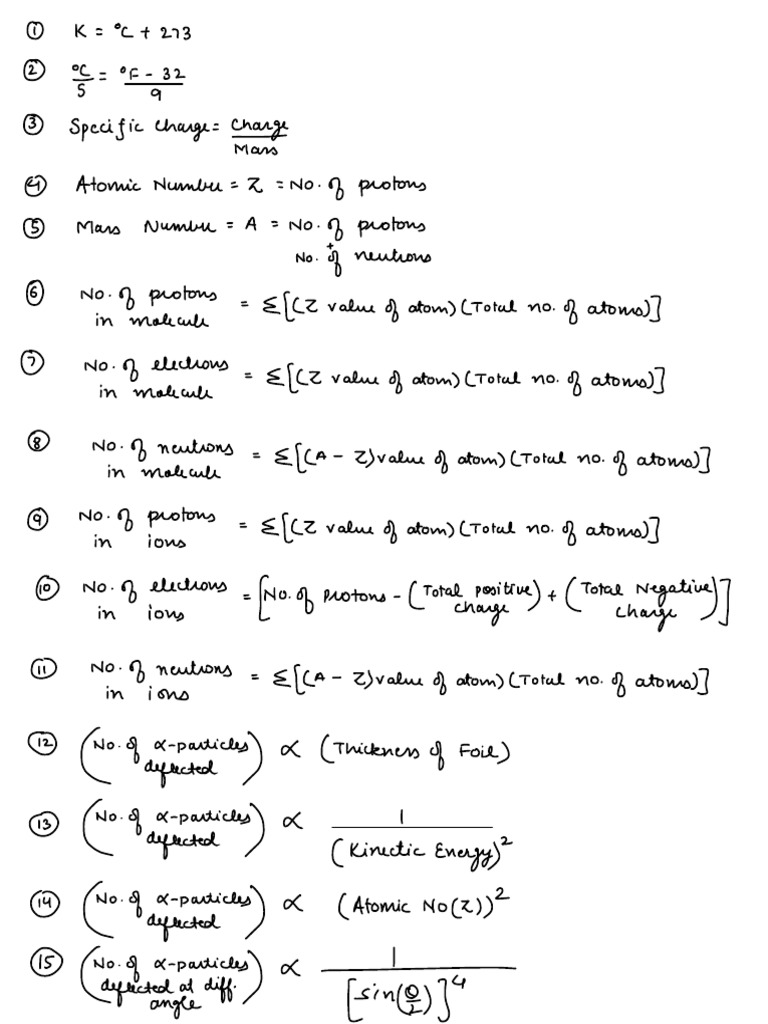 ① K = °C + 273
② °C/5 = °F - 32/9
③ Specific charge = Charge/Mass
④ Atomic Number = Z = No. of protons
⑤ Mass Number = A = No. of protons
+
No. of neutrons
⑥ No. of protons in molecule = Σ[(Z value of atom)(Total no. of atoms)]
⑦ No. of electrons in molecule = Σ[(Z value of atom)(Total no. of atoms)]
⑧ No. of neutrons in molecule = Σ[(A - Z) value of atom)(Total no. of atoms)]
⑨ No. of protons in ions = Σ[(Z value of atom)(Total no. of atoms)]
⑩ No. of electrons in ions = [No. of protons - (Total positive charge) + (Total Negative charge)]
⑪ No. of neutrons in ions = Σ[(A - Z) value of atom)(Total no. of atoms)]
⑫ (No. of α-particles deflected) ∝ (Thickness of Foil)
⑬ (No. of α-particles deflected) ∝ 1/(Kinectic Energy)²
⑭ (No. of α-particles deflected) ∝ (Atomic No(Z))²
⑮ (No. of α-particles deflected at diff. angle) ∝ 1/[sin(θ/2)]⁴